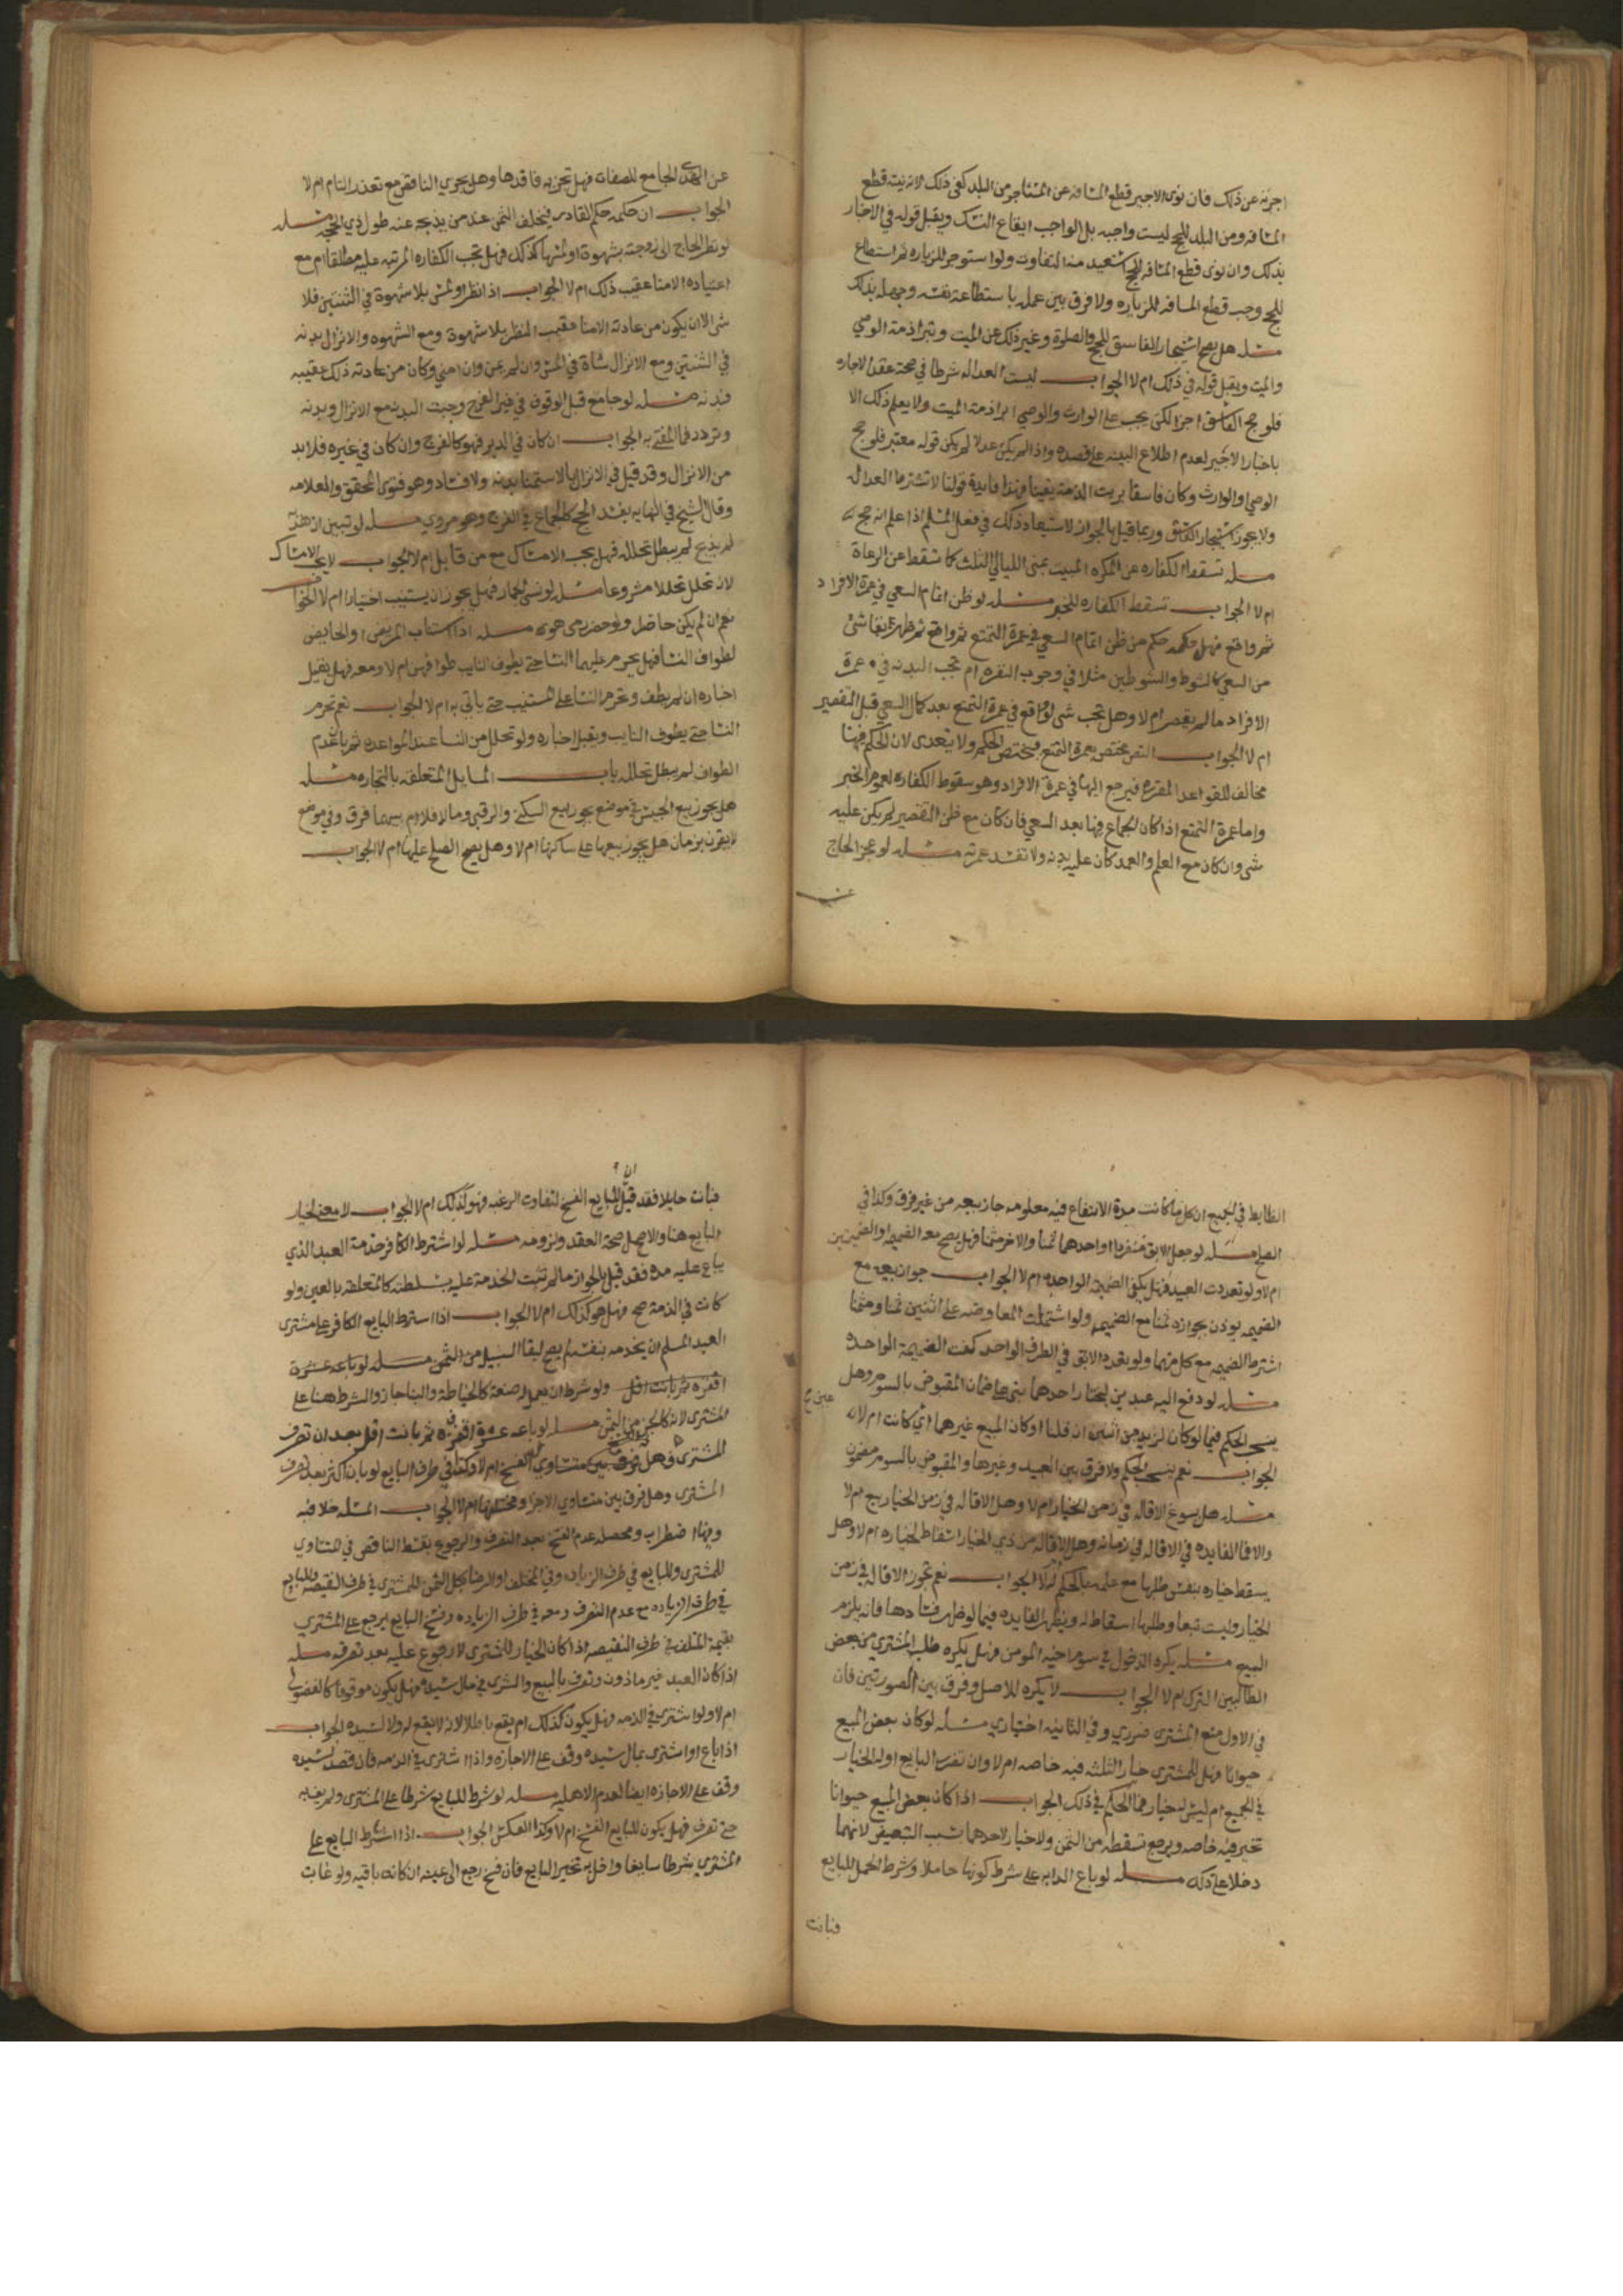 اجرته عن ذلك فان نوى الاجير قطع المسافه عن المستاجر من البلد كفى ذلك لانه نيته قطع
المسافه ومن البلد للحج ليست واجبه بل الواجب ايقاع النسك ويقبل قوله في الاخبار
بذلك وان نوى قطع المسافه للحج استعيد منه التفاوت ولو استوجر للزياره ثم استطاع
للحج وجب قطع المسافه للزياره ولا فرق بين علمه باستطاعة نفسه وجهله بذلك
مسله هل يصح استيجار الفاسق للحج والصلوة وغير ذلك عن الميت وتبرا ذمة الوصي
والميت ويقبل قوله في ذلك ام لا الجواب ليست العداله شرطا في صحة عقد الاجاره
فلو حج الفاسق اجزا لكن يجب على الوارث والوصي ابراذمة الميت ولا يعلم ذلك الا
باخبار الاجير لعدم اطلاع البينه على قصده واذا لم يكن عدلا لم يكن قوله معتبر فلو حج
الوصي او الوارث وكان فاسقا بريت الذمة يقينا فهذا فايدة قولنا لا تشترط العداله
ولا يجوز استيجار الفاسق وربما قيل بالجواز لاستبعاد ذلك في فعل المسلم اذا علم انه حج
مسله تسقط الكفاره عن المكره المبيت بمنى الليالي الثلث كما تسقط عن الرعاة
ام لا الجواب تسقط الكفاره للخبر مسله لو ظن اتمام السعي في عمرة الافراد
ثم واقع فهل حكمه حكم من ظن اتمام السعي في عمرة التمتع ثم واقع ثم ظهر بقا شئ
من السعي كالشوط والشوطين مثلا في وجوب البقره ام تجب البدنه في عمرة
الافراد ما لم يقصر ام لا وهل تجب شى لو واقع في عمرة التمتع بعد كمال السعي قبل التقصير
ام لا الجواب النص مختص بعمرة التمتع فيختص الحكم ولا يتعدى لان الحكم فيها
مخالف للقواعد المقرره فيرجع اليها في عمرة الافراد وهو سقوط الكفاره لعموم الخبر
واما عمرة التمتع اذا كان الجماع فيها بعد السعي فان كان مع ظن التقصير لم يكن عليه
شى وان كان مع العلم والعمد كان عليه بدنه ولا تفسد عمرته مسله لو عجز الحاج
عن
عن الهدى الجامع للصفات فهل تجزيه فاقدها وهل يجزي الناقص مع تعذر التام ام لا
الجواب ان حكمه حكم القادر فيخلف الثمن عند من يذبحه عنه طول ذي الحجه مسله
لو نظر الحاج الى زوجته بشهوة او لمسها كذلك فهل تجب الكفاره المرتبه عليه مطلقا ام مع
اعتياده الامنا عقيب ذلك ام لا الجواب اذا نظر او لمس بلا شهوة في الثنتين فلا
شى الا ان يكون من عادته الامنا عقيب النظر بلا شهوة ومع الشهوه والانزال بدنه
في الثنتين ومع الانزال شاة في المس وان لم يمن وان امنى وكان من عادته ذلك عقيبه
فبدنه مسله لو جامع قبل الوقوف في غير الفرج وجبت البدنه مع الانزال وبدنه
وتردد فما المفتى به الجواب ان كان في الدبر فهو كالفرج وان كان في غيره فلا بد
من الانزال وقد قيل في الانزال بالاستمنا بدنه ولا فساد وهو فتوى المحقق والعلامه
وقال الشيخ في النهايه يفسد الحج كالجماع في الفرج وهو مروي مسله لو تبين ان هديه
لم يذبح لم يبطل تحلله فهل يجب الامساك مع من قابل ام لا الجواب لا يجب الامساك
لانه تحلل تحللا مشروعا مسله لو نسى الجمار فهل يجوز ان يستنيب اختيارا ام لا الجواب
نعم ان لم يكن حاضر ولو حضر رمى هو مسله اذا استناب المريض او الحايض
لطواف النسا فهل يحرم عليهما النسا حتى يطوف النايب طوافهن ام لا ومعه فهل يقبل
اخباره ان لم يطف وتحرم النسا على المستنيب حتى ياتي به ام لا الجواب نعم تحرم
النسا حتى يطوف النايب ويقبل اخباره ولو تحلل من النسا عند المواعده ثم بان عدم
الطواف لم يبطل تحلله باب المسايل المتعلقه بالتجاره مسله
هل يجوز بيع الحبس في موضع يجوز بيع السكنى والرقبى وما لا فلا ام بينهما فرق وفي موضع
لا يقرن بزمان هل يجوز بيعها على ساكنها ام لا وهل يصح الصلح عليها ام لا الجواب
الضابط في الجميع ان كل ما كانت مدة الانتفاع فيه معلومه جاز بيعه من غير فرق وكذا في
الصلح مسله لو جعل الابق منفردا او احدهما ثمنا والاخر مثمنا فهل يصح معه الضميمه او الضميمتين
ام لا ولو تعددت العبيد فهل يكفى الضميمه الواحده ام لا الجواب جواز بيعه مع
الضميمه يوذن بجوازه ثمنا مع الضميمه ولو اشتملت المعاوضه على اثنين ثمنا ومثمنا
اشترط الضميمه مع كل منهما ولو تعدد الابق في الطرف الواحد كفت الضميمة الواحده
مسله لو دفع اليه عبدين ليختار احدهما بنى على ضمان المقبوض بالسوم وهل
ينسحب الحكم فيما لو كان لزيد من اثنين ان قلنا او كان المبيع غيرهما اي كانت ام لا
الجواب نعم ينسحب الحكم ولا فرق بين العبيد وغيرها والمقبوض بالسوم مضمون
مسله هل يسوغ الاقاله في زمن الخيار ام لا وهل الاقاله في زمن الخيار بيع ام لا
والا فما الفايده في الاقاله في زمانه وهل الاقاله من ذي الخيار اسقاط لخياره ام لا وهل
يسقط خياره بنفس طلبها مع علمه بالحكم ام لا الجواب نعم تجوز الاقاله في زمن
الخيار وليست بيعا وطلبها اسقاط له ويظهر الفايده فيما لو ظهر فسادها فانه يلزم
البيع مسله يكره الدخول في سوم اخيه المومن فهل يكره طلب المشتري من بعض
الطالبين الترك ام لا الجواب لا يكره للاصل وفرق بين الصورتين فان
في الاول منع المشترى ضروري وفي الثانيه اختياري مسله لو كان بعض المبيع
حيوانا فهل للمشترى خيار الثلثه فيه خاصه ام لا وان تضرر البايع او له الخيار
في الجميع ام ليس له خيار فما الحكم في ذلك الجواب اذا كان بعض المبيع حيوانا
تخير فيه خاصه ويرجع بقسطه من الثمن ولا خيار لاحدهما بسبب التبعيض لانهما
دخلا على ذلك مسله لو باع الدابه على شرط كونها حاملا وشرط الحمل للبايع
فبانت
فبانت حايلا فقد قيل للبايع الفسخ لتفاوت الرغبه فهو كذلك ام لا الجواب لا معنى لخيار
البايع هنا والاصل صحة العقد ولزومه مسله لو اشترط الكافر خدمة العبد الذي
يباع عليه مده فقد قيل بالجواز ما لم تثبت الخدمة عليه بسلطنه كالمتعلقه بالعين ولو
كانت في الذمة صح فهل هو كذلك ام لا الجواب اذا اشترط البايع الكافر على مشترى
العبد المسلم ان يخدمه بنفسه لم يصح لبقا السبيل من الثمن مسله لو باعه عشرة
اقفزه ثم بانت اقل ولو شرط ان يعمل له صنعة كالخياطه والبنا جاز والشرط هنا على
المشترى لانه كالجزء من الثمن مسله لو باعه عشرة اقفزه ثم بانت اقل بعد ان تصرف
المشترى وهل فرق بين متساوي الفسخ ام لا وكذا في طرف البايع لو بان اكثر بعد تصرف
المشترى وهل فرق بين متساوي الاجزا ومختلفها ام لا الجواب المسله خلافيه
وفيها اضطراب ومحصله عدم الفسخ بعد التصرف والرجوع بقسط الناقص في المتساوي
للمشترى وللبايع في طرف الزياده وفي المختلف او الرضا بكل الثمن للمشترى في طرف النقيصه وللبايع
في طرف الزياده مع عدم التصرف ومعه في طرف الزياده وفسخ البايع يرجع على المشتري
بقيمة المتلف في طرف النقيصه اذا كان الخيار للمشترى لا رجوع عليه بعد تصرفه مسله
اذا كان العبد غير ماذون وتصرف بالبيع والشرى في مال سيده فهل يكون موقوفا كالفضولي
ام لا ولو اشترى في الذمه فهل يكون كذلك ام يقع باطلا لانه لا يقع له ولا لسيده الجواب
اذا باع او اشترى بمال سيده وقف على الاجازه واذا اشترى في الذمه فان قصد لسيده
وقف على الاجازه ايضا لعدم الاهليه مسله لو شرط للبايع شرطا على المشترى ولم يف به
حتى تصرف فهل يكون للبايع الفسخ ام لا وكذا العكس الجواب اذا اشترط البايع على
المشتري شرطا سايغا واخل به تخير البايع فان فسخ رجع الى عينه ان كانت باقيه ولو غابت